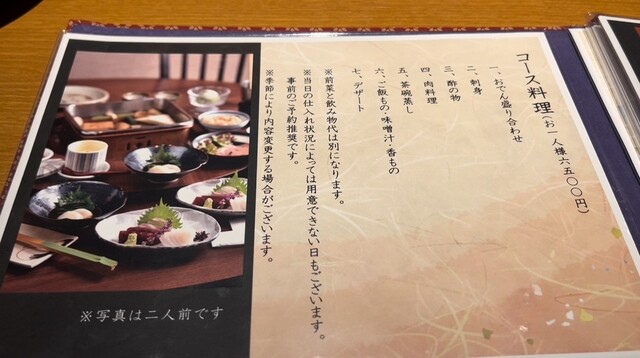 コース料理(お一人様六五〇〇円)
一、おでん盛り合わせ
二、刺身
三、酢の物
四、肉料理
五、茶碗蒸し
六、ご飯もの・味噌汁・香もの
七、デザート
※前菜と飲み物代は別になります。
※当日の仕入れ状況によっては用意できない日もございます。
事前のご予約推奨です。
※季節により内容変更する場合がございます。
※写真は二人前です